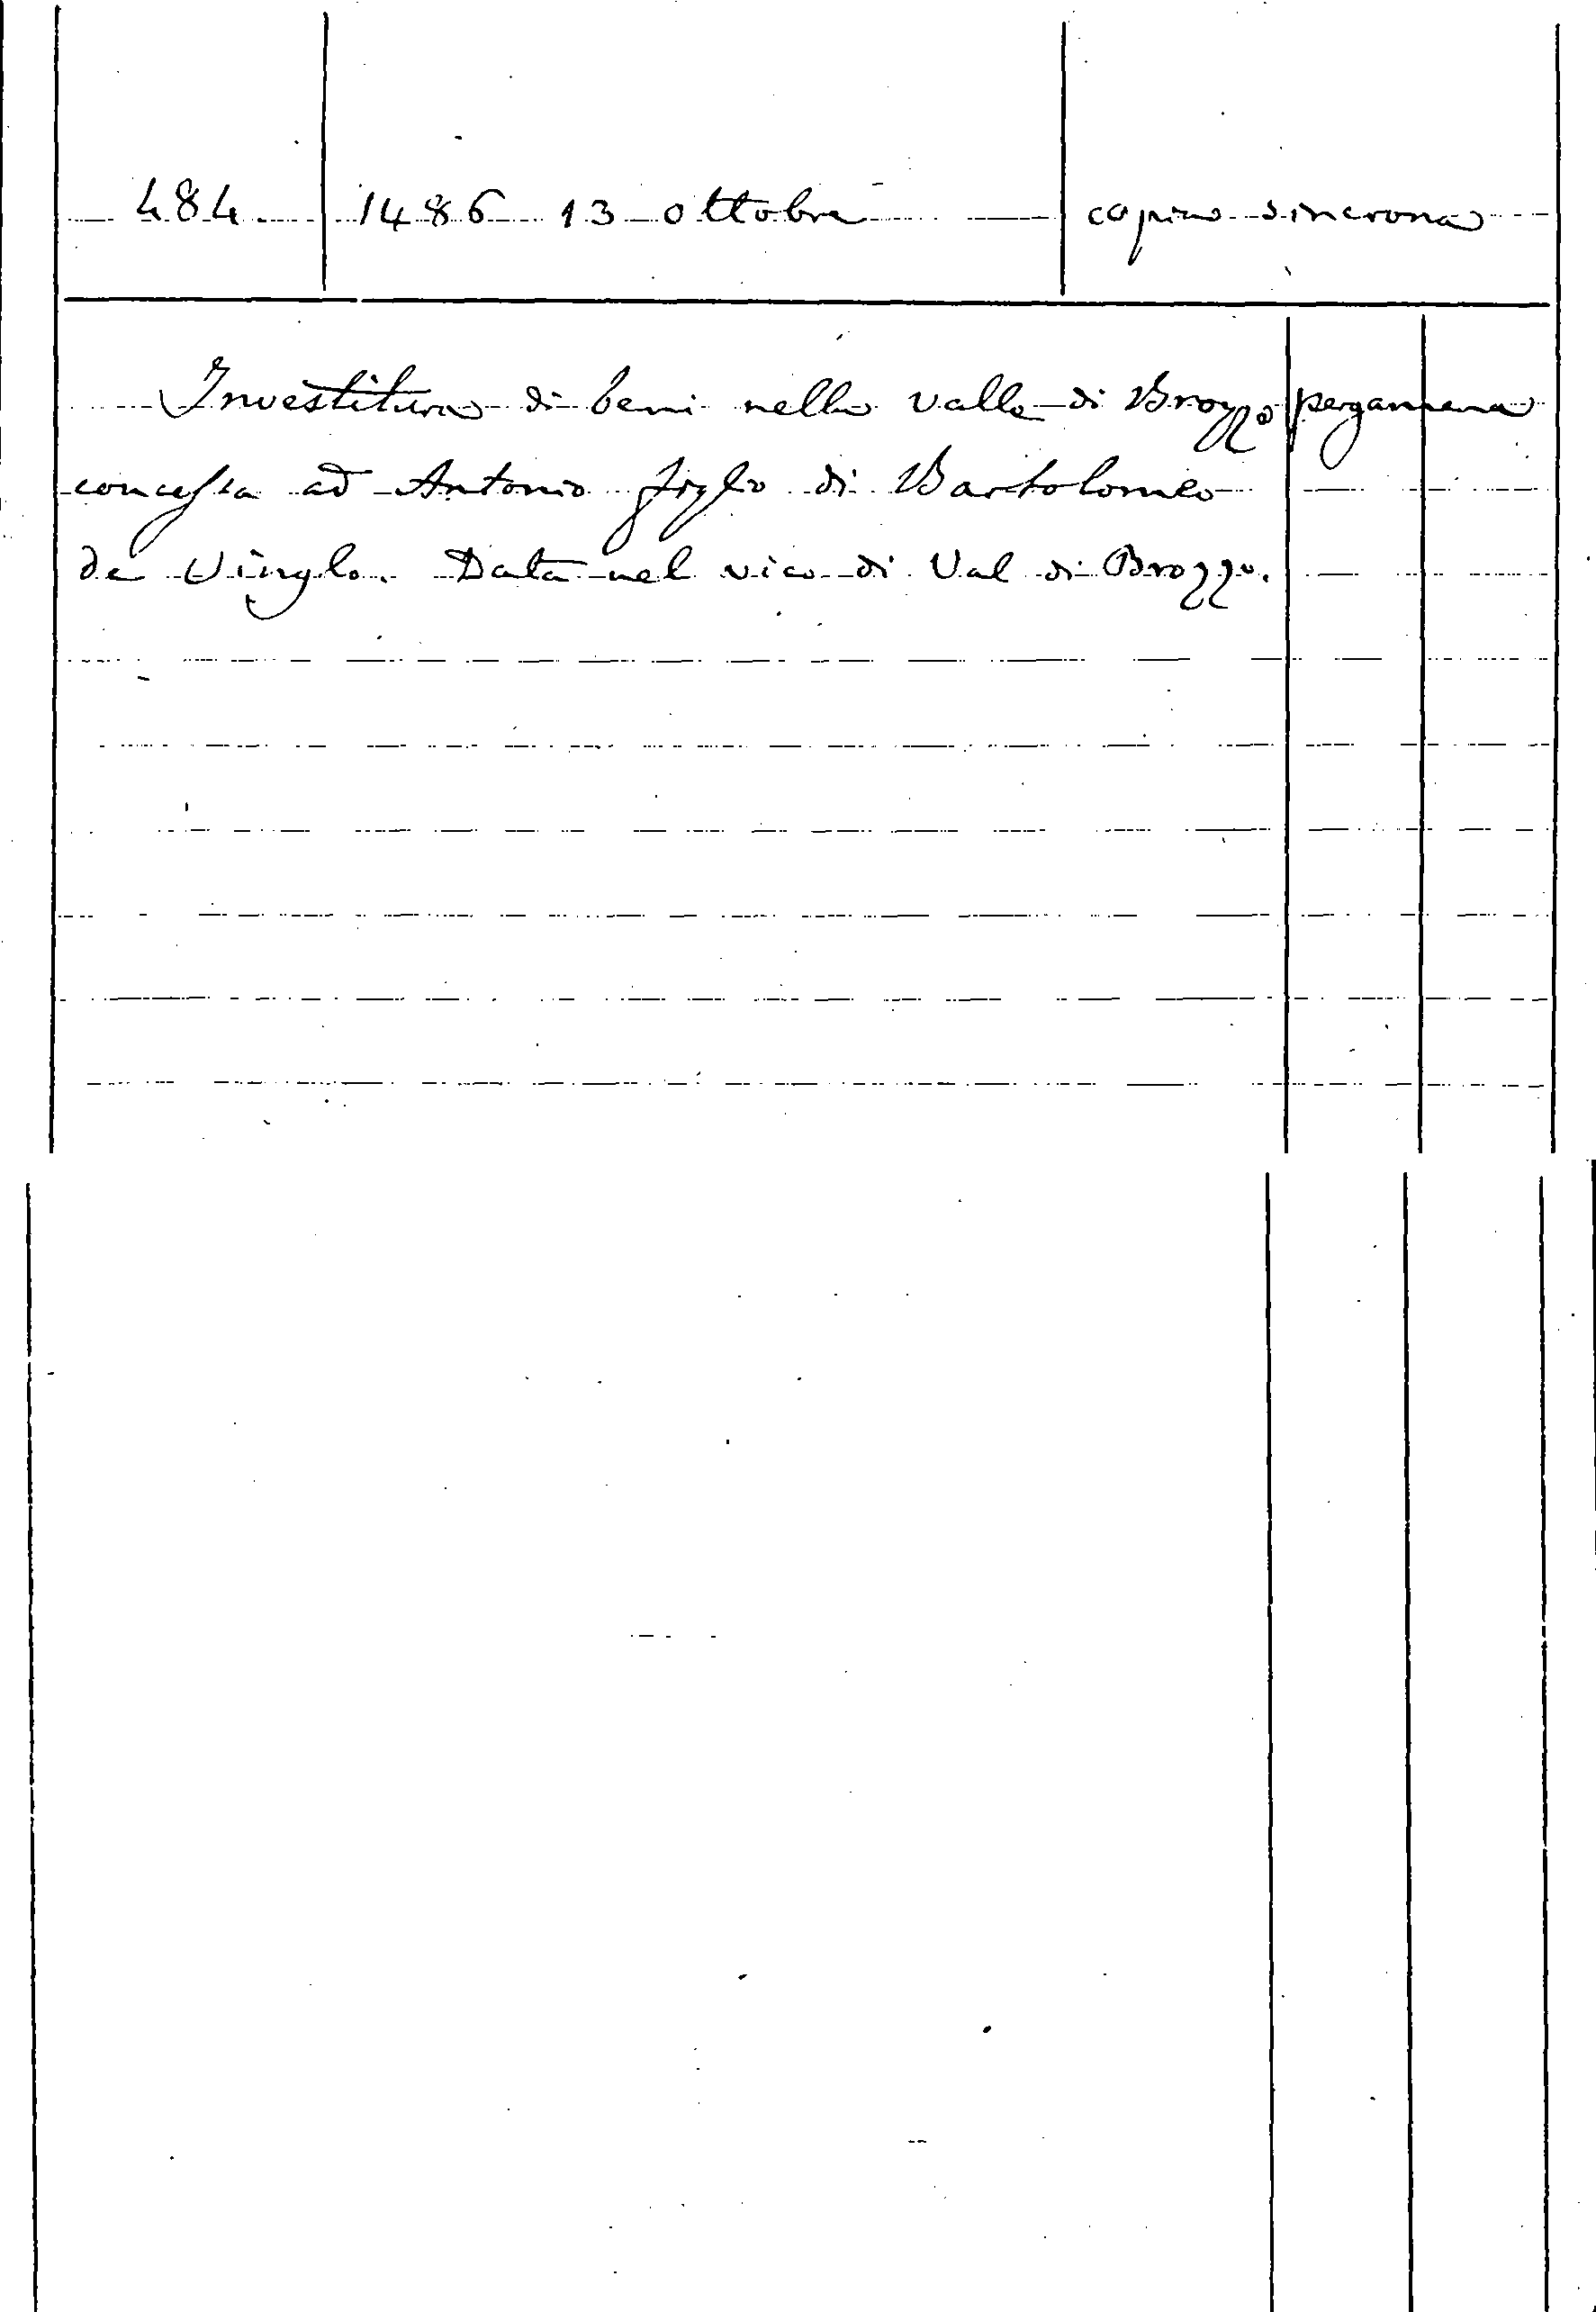 484. 1486 13 ottobre copia sincrona
Investitura di beni nella valle di Brozzo pergamena
concessa ad Antonio figlio di Bartolomeo
de Vinglo. Data nel vico di Val di Brozzo.